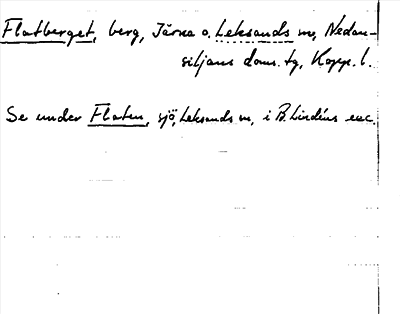 Flatberget, berg, Järna o. Leksands sn, Nedan-
siljans doms. tg, Kopp. l.
Se under Flaten, sjö, Leksands sn, i B. Lindéns exc.